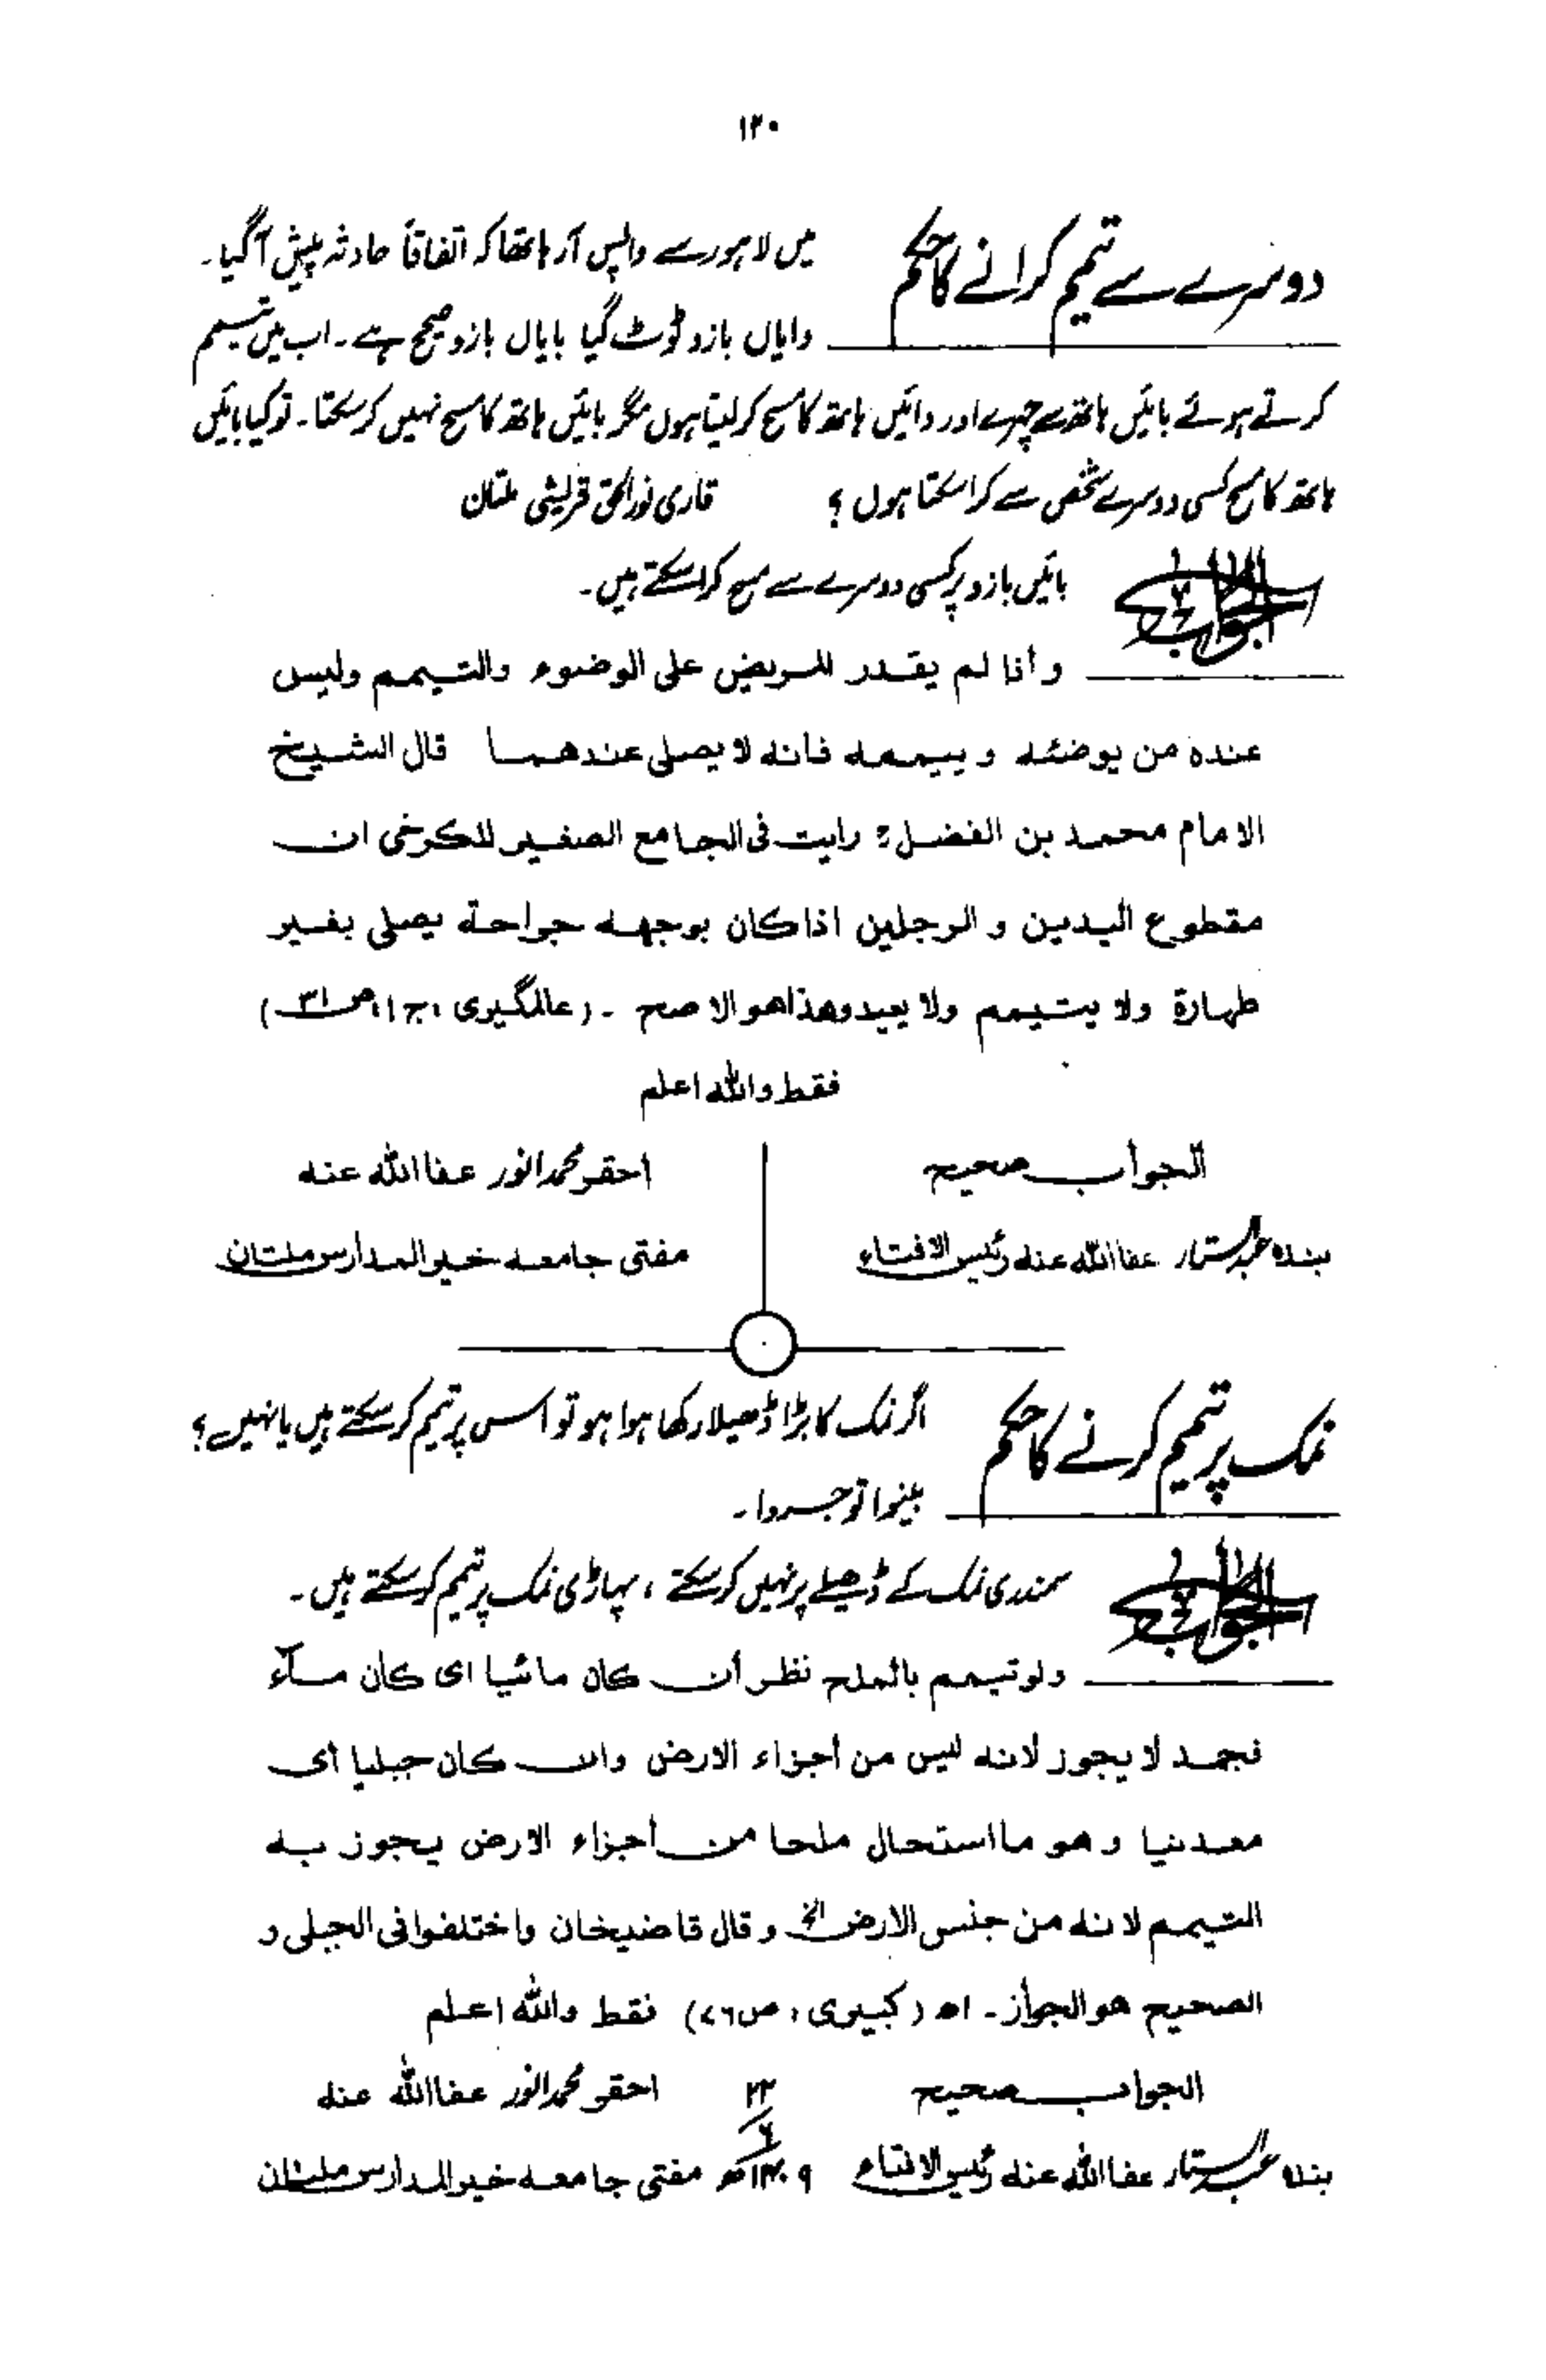 ۱۳۰
دوسرے سے تیمم کرانے کا حکم
میں لاہور سے واپس آرہا تھا کہ اتفاقاً حادثہ پیش آگیا۔
دایاں بازو ٹوٹ گیا بایاں بازو صحیح ہے۔ اب میں تیمم
کرتے ہوئے بائیں ہاتھ سے چہرے اور دائیں ہاتھ کا مسح کر لیتا ہوں مگر بائیں ہاتھ کا مسح نہیں کر سکتا۔ تو کیا بائیں
ہاتھ کا مسح کسی دوسرے شخص سے کرا سکتا ہوں ؟ قاری نور الحق قریشی ملتان
الجواب
بائیں بازو پر کسی دوسرے سے مسح کرا سکتے ہیں۔
وأذا لم يقدر المريض على الوضوء والتيمم وليس
عنده من يوضئه و ييممه فانه لا يصلى عندهما قال الشيخ
الامام محمد بن الفضل رايت فى الجامع الصغير للكرخى ان
مقطوع اليدين و الرجلين اذا كان بوجهه جراحة يصلى بغير
طهارة ولا يتيمم ولا يعيد وهذا هو الاصح ۔ (عالمگیری ، ج ۱، ص ۳۱)
فقط واللہ اعلم
الجواب صحیح
بندہ عبدالستار عفا اللہ عنہ رئیس الافتاء
احقر محمد انور عفا اللہ عنہ
مفتی جامعہ خیر المدارس ملتان
نمک پر تیمم کرنے کا حکم
اگر نمک کا بڑا ڈھیلا رکھا ہوا ہو تو اس پر تیمم کر سکتے ہیں یا نہیں ؟
بینوا توجروا۔
الجواب
سمندری نمک کے ڈھیلے پر نہیں کر سکتے ، پہاڑی نمک پر تیمم کر سکتے ہیں۔
ولو تيمم بالملح نظر أن كان مائيا اى كان ماءً
فجمد لا يجوز لانه ليس من أجزاء الارض وان كان جبليا أى
معدنيا و هو ما استحال ملحا من أجزاء الارض يجوز به
التيمم لانه من جنس الارض الخ و قال قاضيخان واختلفوا فى الجبلى و
الصحيح هو الجواز۔ اھ (کبیری ، ص۷۶) فقط واللہ اعلم
الجواب صحیح
بندہ عبدالستار عفا اللہ عنہ رئیس الافتاء
۲۳
۶
۱۴۰۹ھ
احقر محمد انور عفا اللہ عنہ
مفتی جامعہ خیر المدارس ملتان